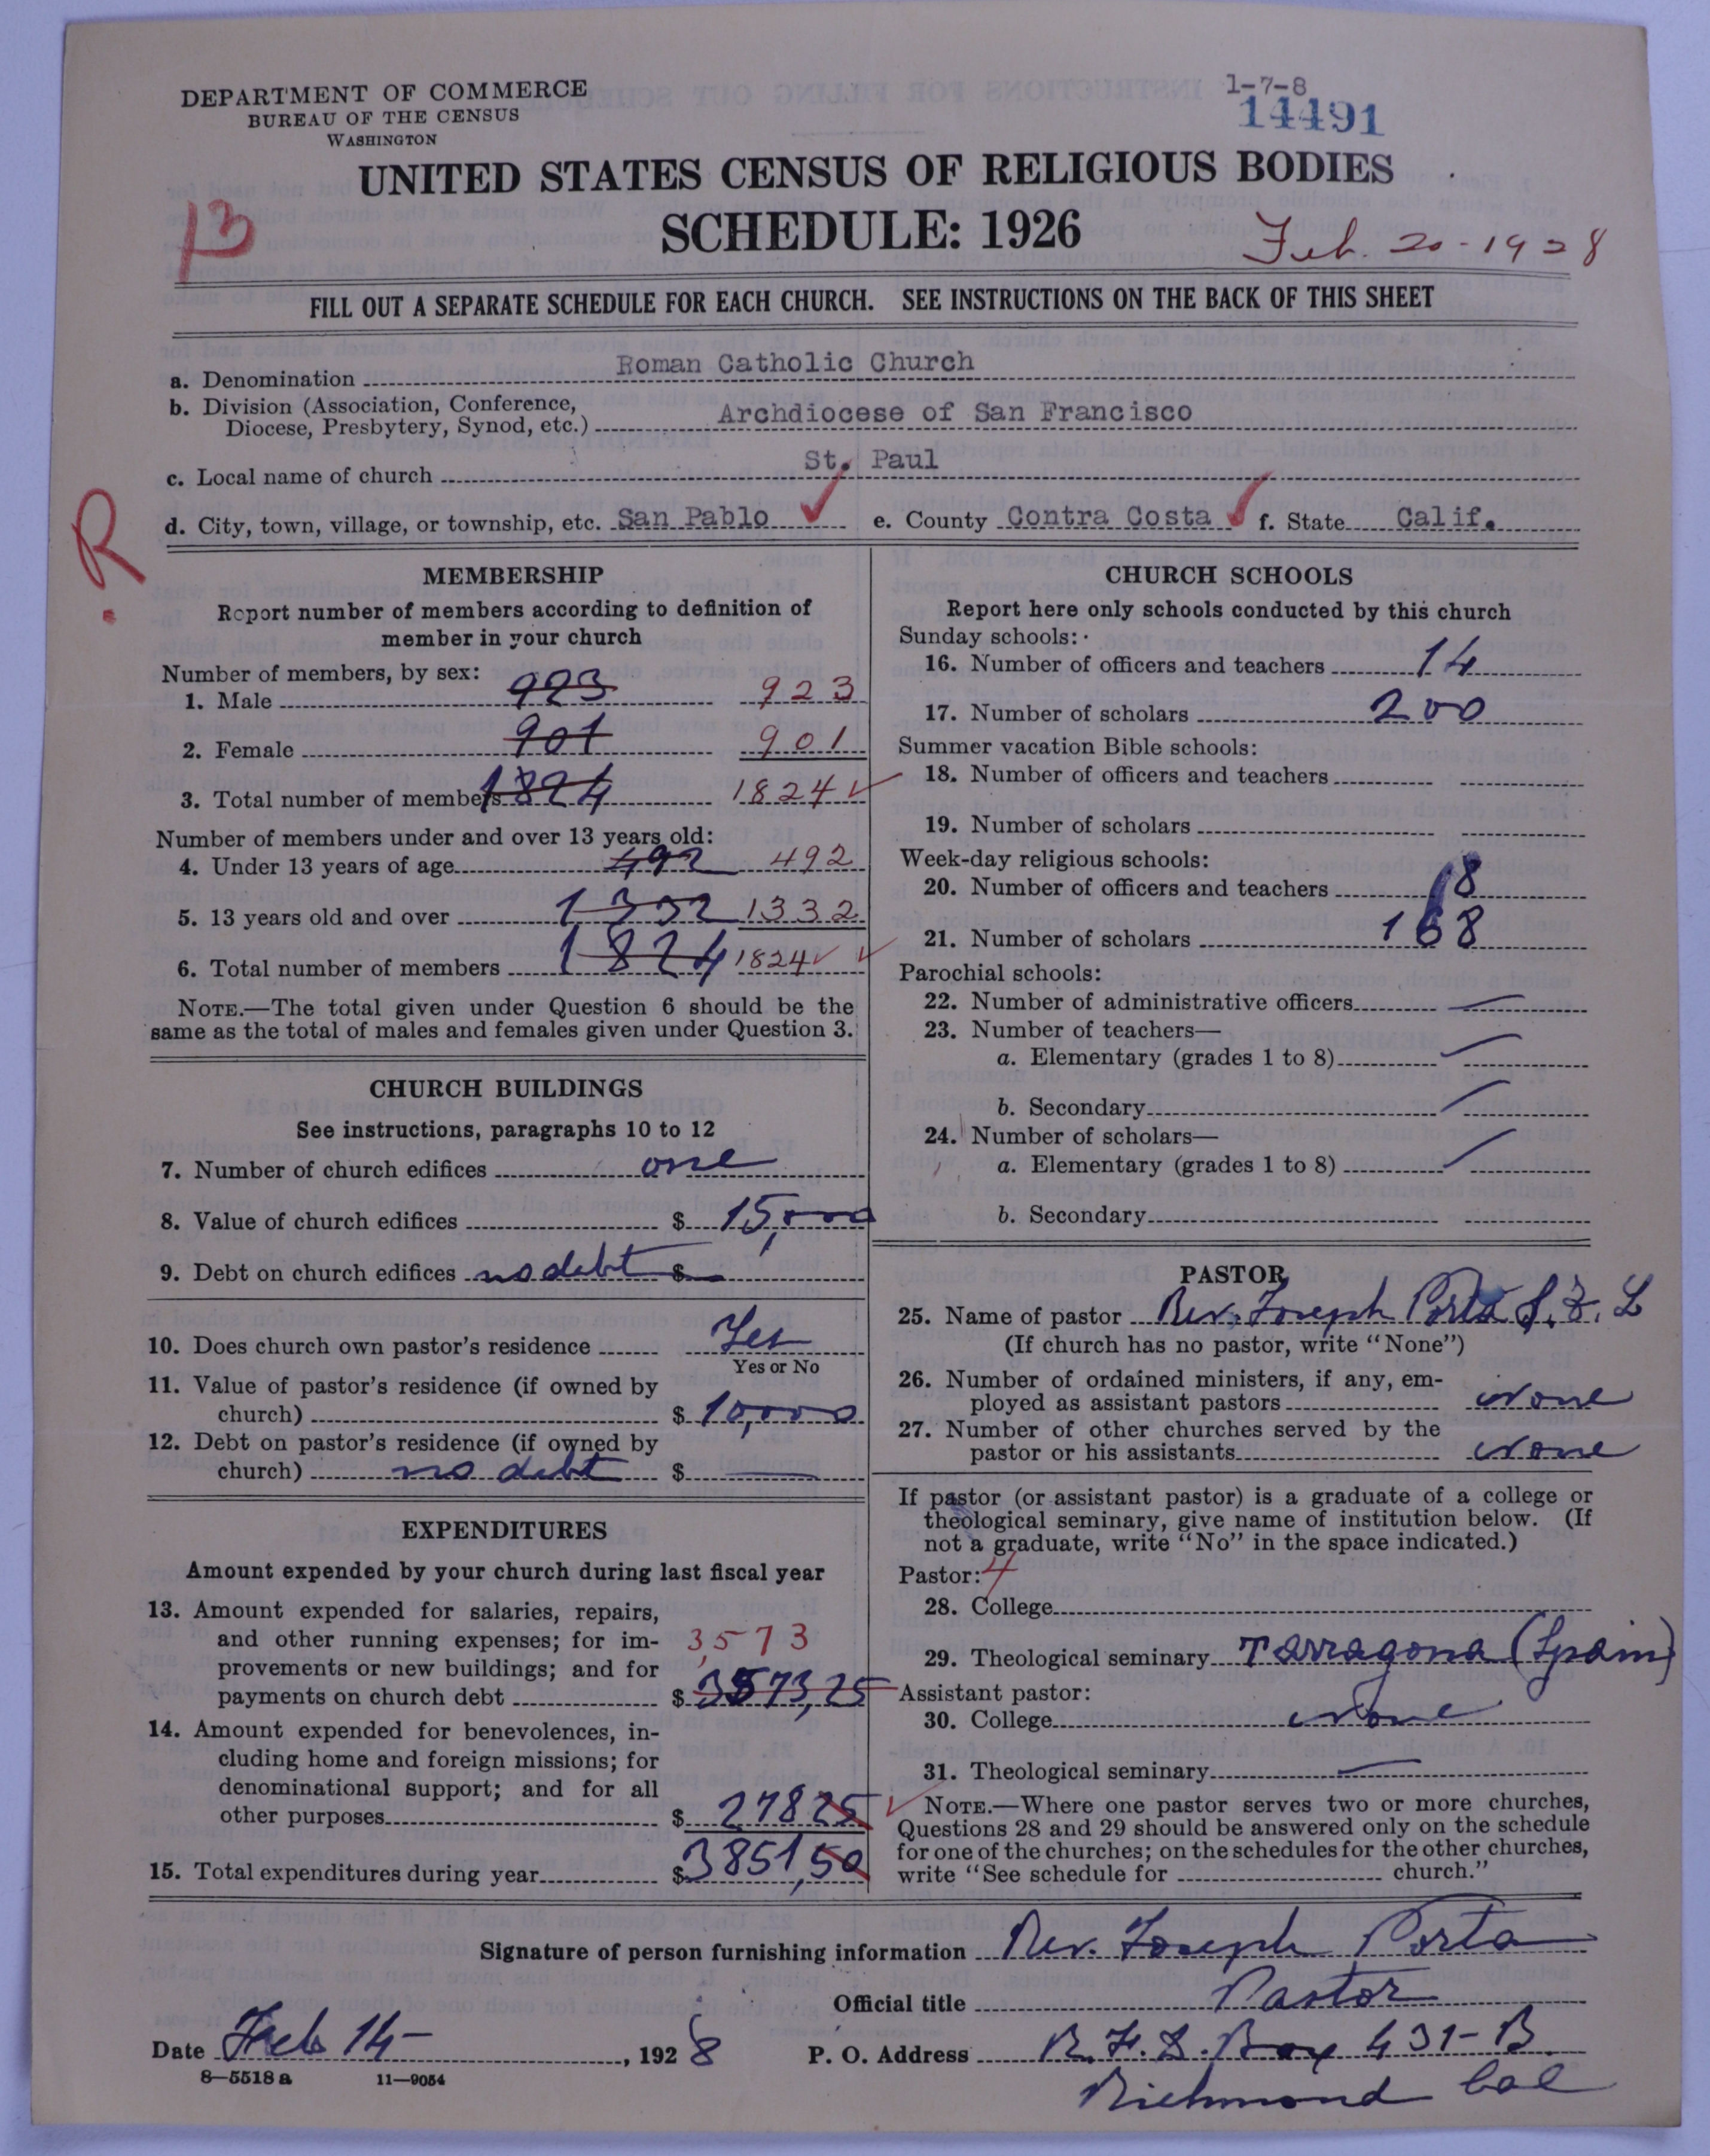 DEPARTMENT OF COMMERCE
BUREAU OF THE CENSUS
WASHINGTON
1-7-8
14491
UNITED STATES CENSUS OF RELIGIOUS BODIES
SCHEDULE: 1926
13
Feb. 20-1928
FILL OUT A SEPARATE SCHEDULE FOR EACH CHURCH. SEE INSTRUCTIONS ON THE BACK OF THIS SHEET
a. Denomination Roman Catholic Church
b. Division (Association, Conference,
Diocese, Presbytery, Synod, etc.) Archdiocese of San Francisco
c. Local name of church St. Paul
d. City, town, village, or township, etc. San Pablo e. County Contra Costa f. State Calif.
R
MEMBERSHIP
Report number of members according to definition of
member in your church
Number of members, by sex:
1. Male 923 923
2. Female 901 901
3. Total number of members 1824 1824
Number of members under and over 13 years old:
4. Under 13 years of age 492 492
5. 13 years old and over 1332 1332
6. Total number of members 1824 1824
NOTE.—The total given under Question 6 should be the
same as the total of males and females given under Question 3.
CHURCH BUILDINGS
See instructions, paragraphs 10 to 12
7. Number of church edifices one
8. Value of church edifices $ 15,000
9. Debt on church edifices no debt $
10. Does church own pastor's residence Yes
Yes or No
11. Value of pastor's residence (if owned by
church) $ 10,000
12. Debt on pastor's residence (if owned by
church) no debt $
EXPENDITURES
Amount expended by your church during last fiscal year
13. Amount expended for salaries, repairs,
and other running expenses; for im- 3573
provements or new buildings; and for
payments on church debt $ 3573,25
14. Amount expended for benevolences, in-
cluding home and foreign missions; for
denominational support; and for all
other purposes $ 27825
15. Total expenditures during year $ 3851,50
CHURCH SCHOOLS
Report here only schools conducted by this church
Sunday schools:
16. Number of officers and teachers 14
17. Number of scholars 200
Summer vacation Bible schools:
18. Number of officers and teachers
19. Number of scholars
Week-day religious schools:
20. Number of officers and teachers 8
21. Number of scholars 168
Parochial schools:
22. Number of administrative officers
23. Number of teachers—
a. Elementary (grades 1 to 8)
b. Secondary
24. Number of scholars—
a. Elementary (grades 1 to 8)
b. Secondary
PASTOR
25. Name of pastor Rev. Joseph Porta
(If church has no pastor, write "None")
26. Number of ordained ministers, if any, em-
ployed as assistant pastors None
27. Number of other churches served by the
pastor or his assistants None
If pastor (or assistant pastor) is a graduate of a college or
theological seminary, give name of institution below. (If
not a graduate, write "No" in the space indicated.)
Pastor: 4
28. College
29. Theological seminary Tarragona (Spain)
Assistant pastor:
30. College None
31. Theological seminary
NOTE.—Where one pastor serves two or more churches,
Questions 28 and 29 should be answered only on the schedule
for one of the churches; on the schedules for the other churches,
write "See schedule for church."
Signature of person furnishing information Rev. Joseph Porta
Official title Pastor
Date Feb 14- , 1928 P. O. Address R.F.D. Box 431-B
8—5518 a 11—9054
Richmond Cal